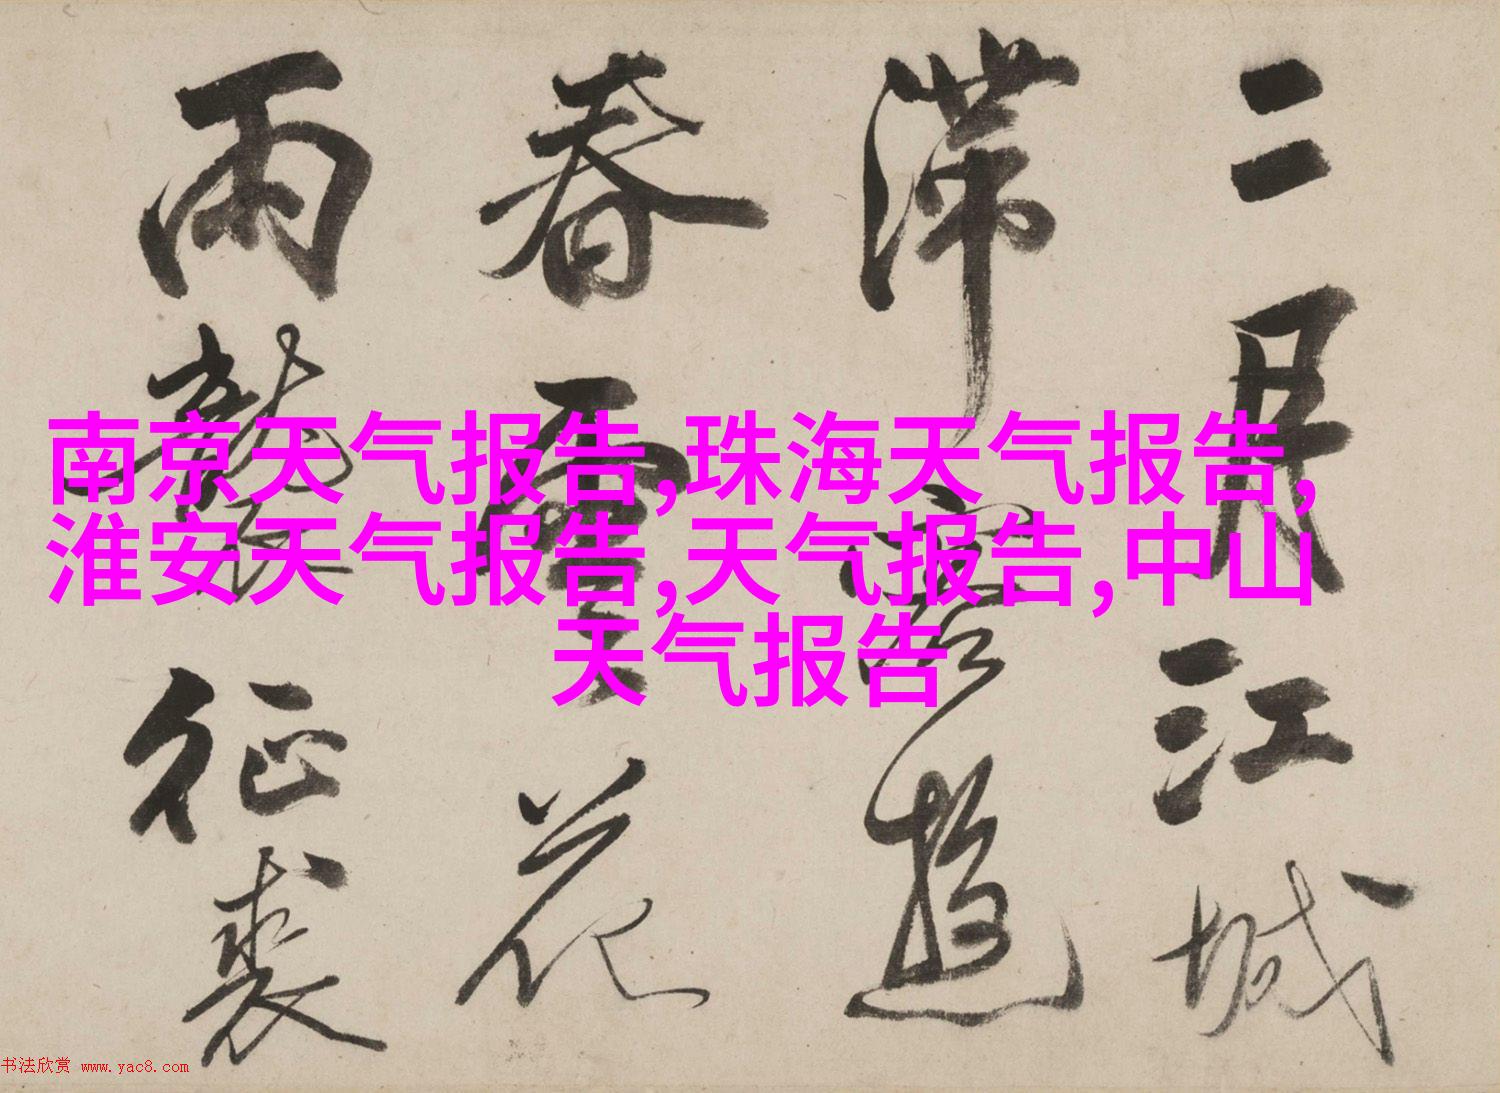 二月江城
滯客遊
春雲花
雨襲征裘
南京天气报告,珠海天气报告,
淮安天气报告,天气报告,中山
天气报告
书法欣赏 www.yac8.com